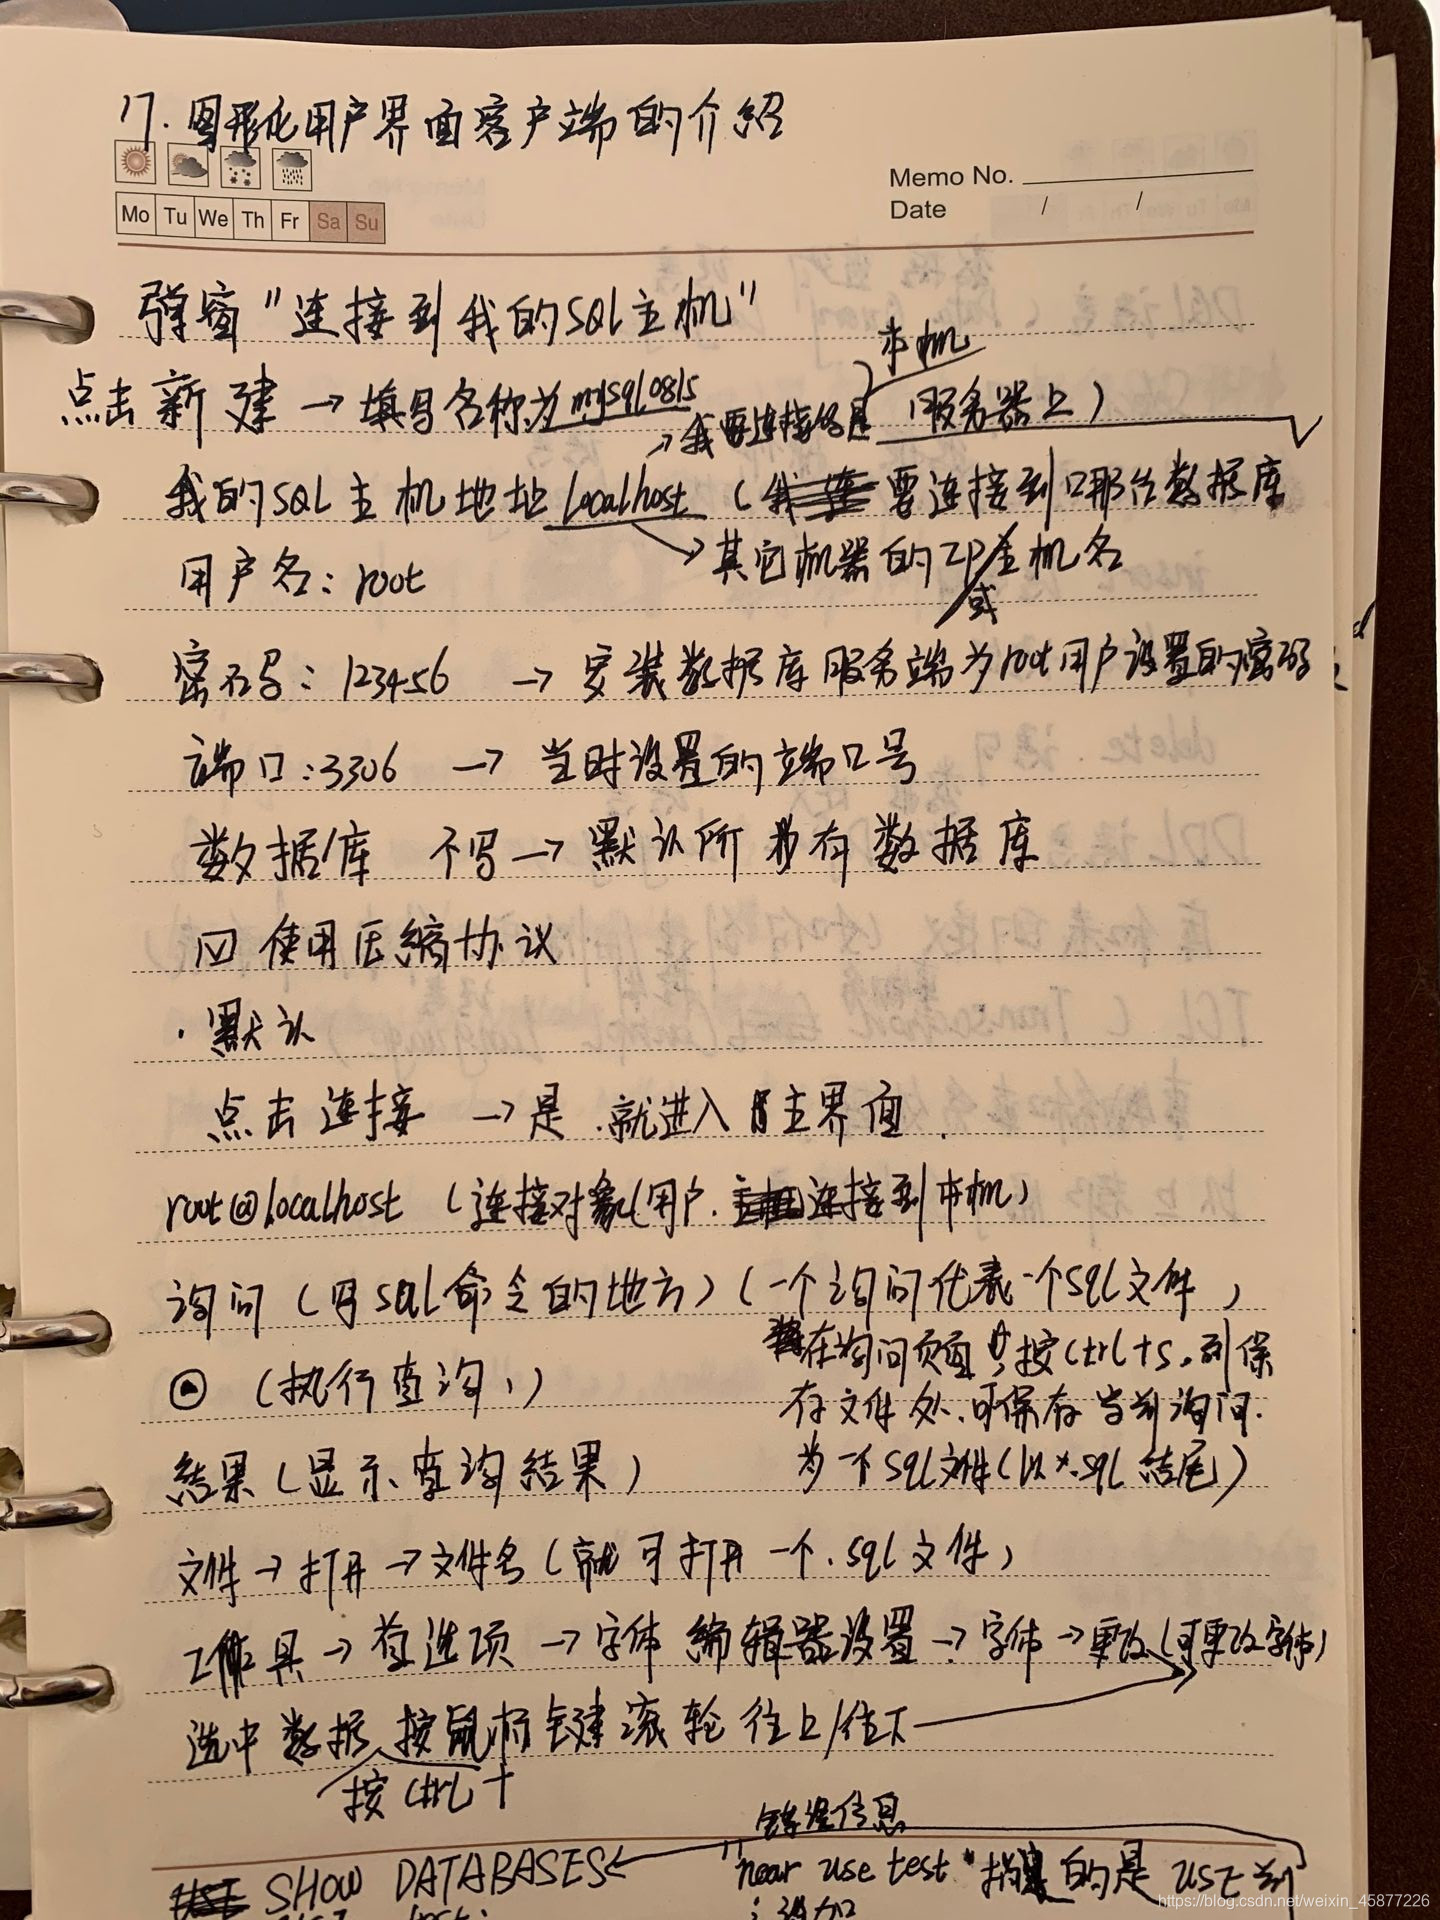 17.图形化用户界面客户端的介绍
Memo No.
Date / /
Mo Tu We Th Fr Sa Su
弹窗"连接到我的SQL主机"
本机
点击新建→填写名称为mysql0815
→我要连接的是 服务器上)
我的SQL主机地址localhost (要连接到哪台数据库
用户名:root
→其它机器的IP/主机名
或
密码:123456 →安装数据库服务端为root用户设置的密码
端口:3306 →当时设置的端口号
数据库 不写→默认所有数据库
使用压缩协议
·默认
点击连接 →是.就进入主界面.
root@localhost (连接对象(用户.连接到本机)
询问(写sql命令的地方)(一个询问代表一个sql文件)
在询问页面 按Ctrl+S.到保
(执行查询,)
存文件处.可保存当前询问.
结果(显示查询结果)
为一个sql文件(以*.sql结尾)
文件→打开→文件名(就可打开一个.sql文件)
工具→首选项→字体 编辑器设置→字体→更改(可更改字体)
选中数据按鼠标键滚轮往上/往下
按Ctrl+
错误信息
SHOW DATABASES
"near use test" 的是USE前
https://blog.csdn.net/weixin_45877226